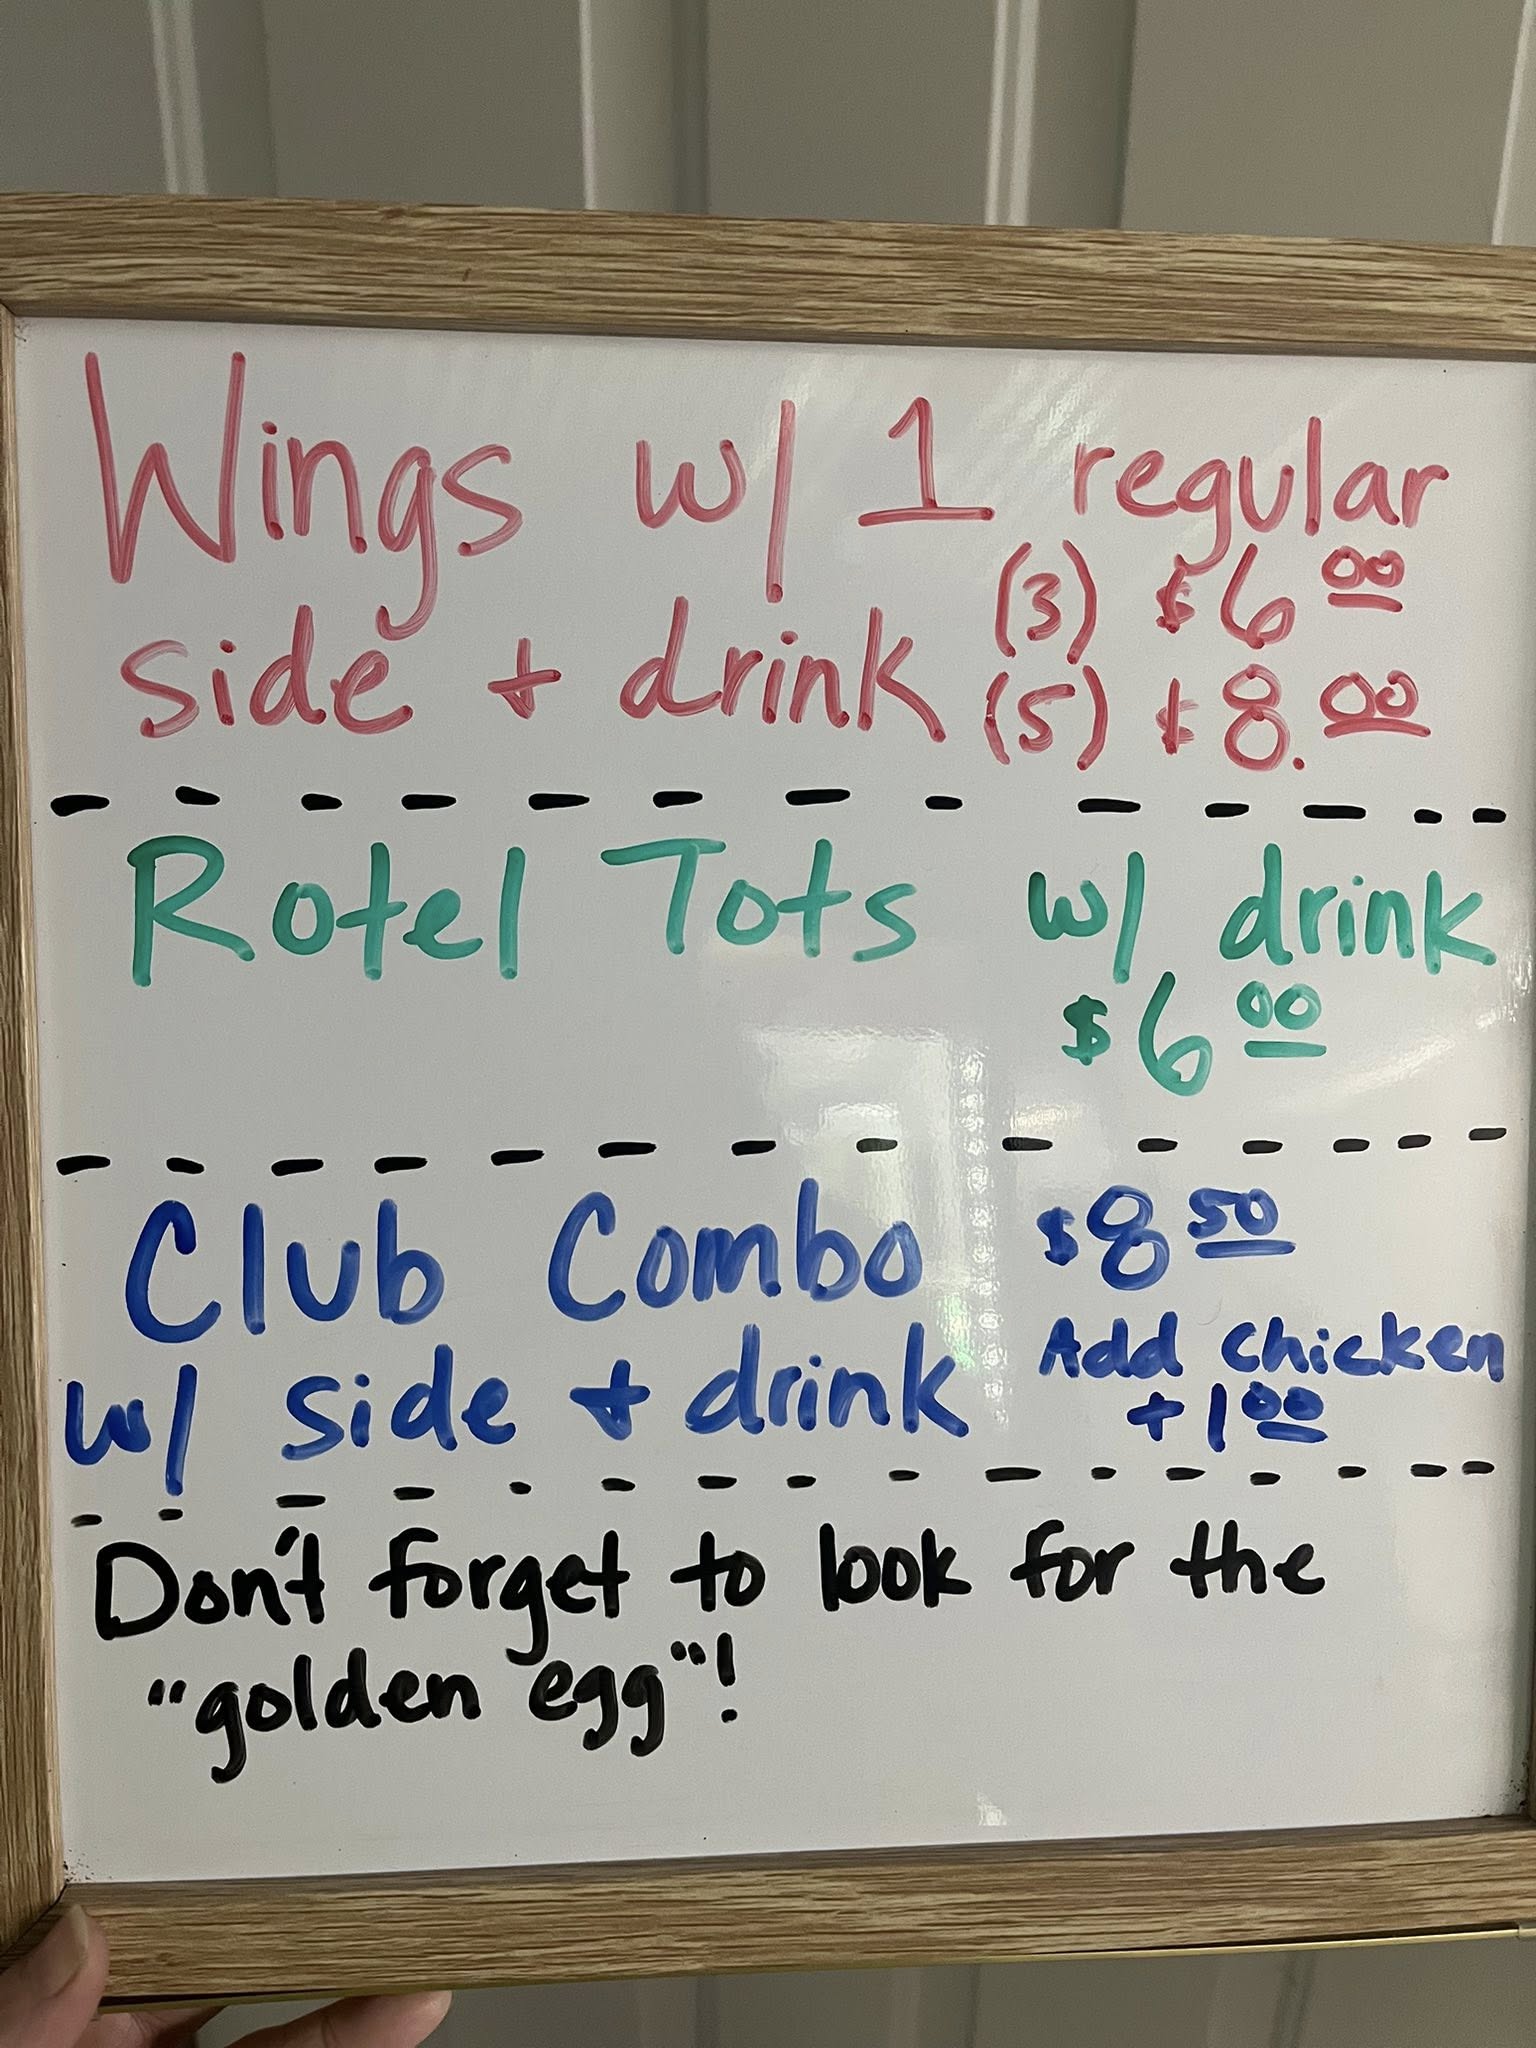 Wings w/ 1 regular
side + drink (3) $6 00
(5) $8.00
Rotel Tots w/ drink
$6 00
Club Combo $8 50
w/ side + drink Add chicken
+1 00
Don't forget to look for the
"golden egg"!